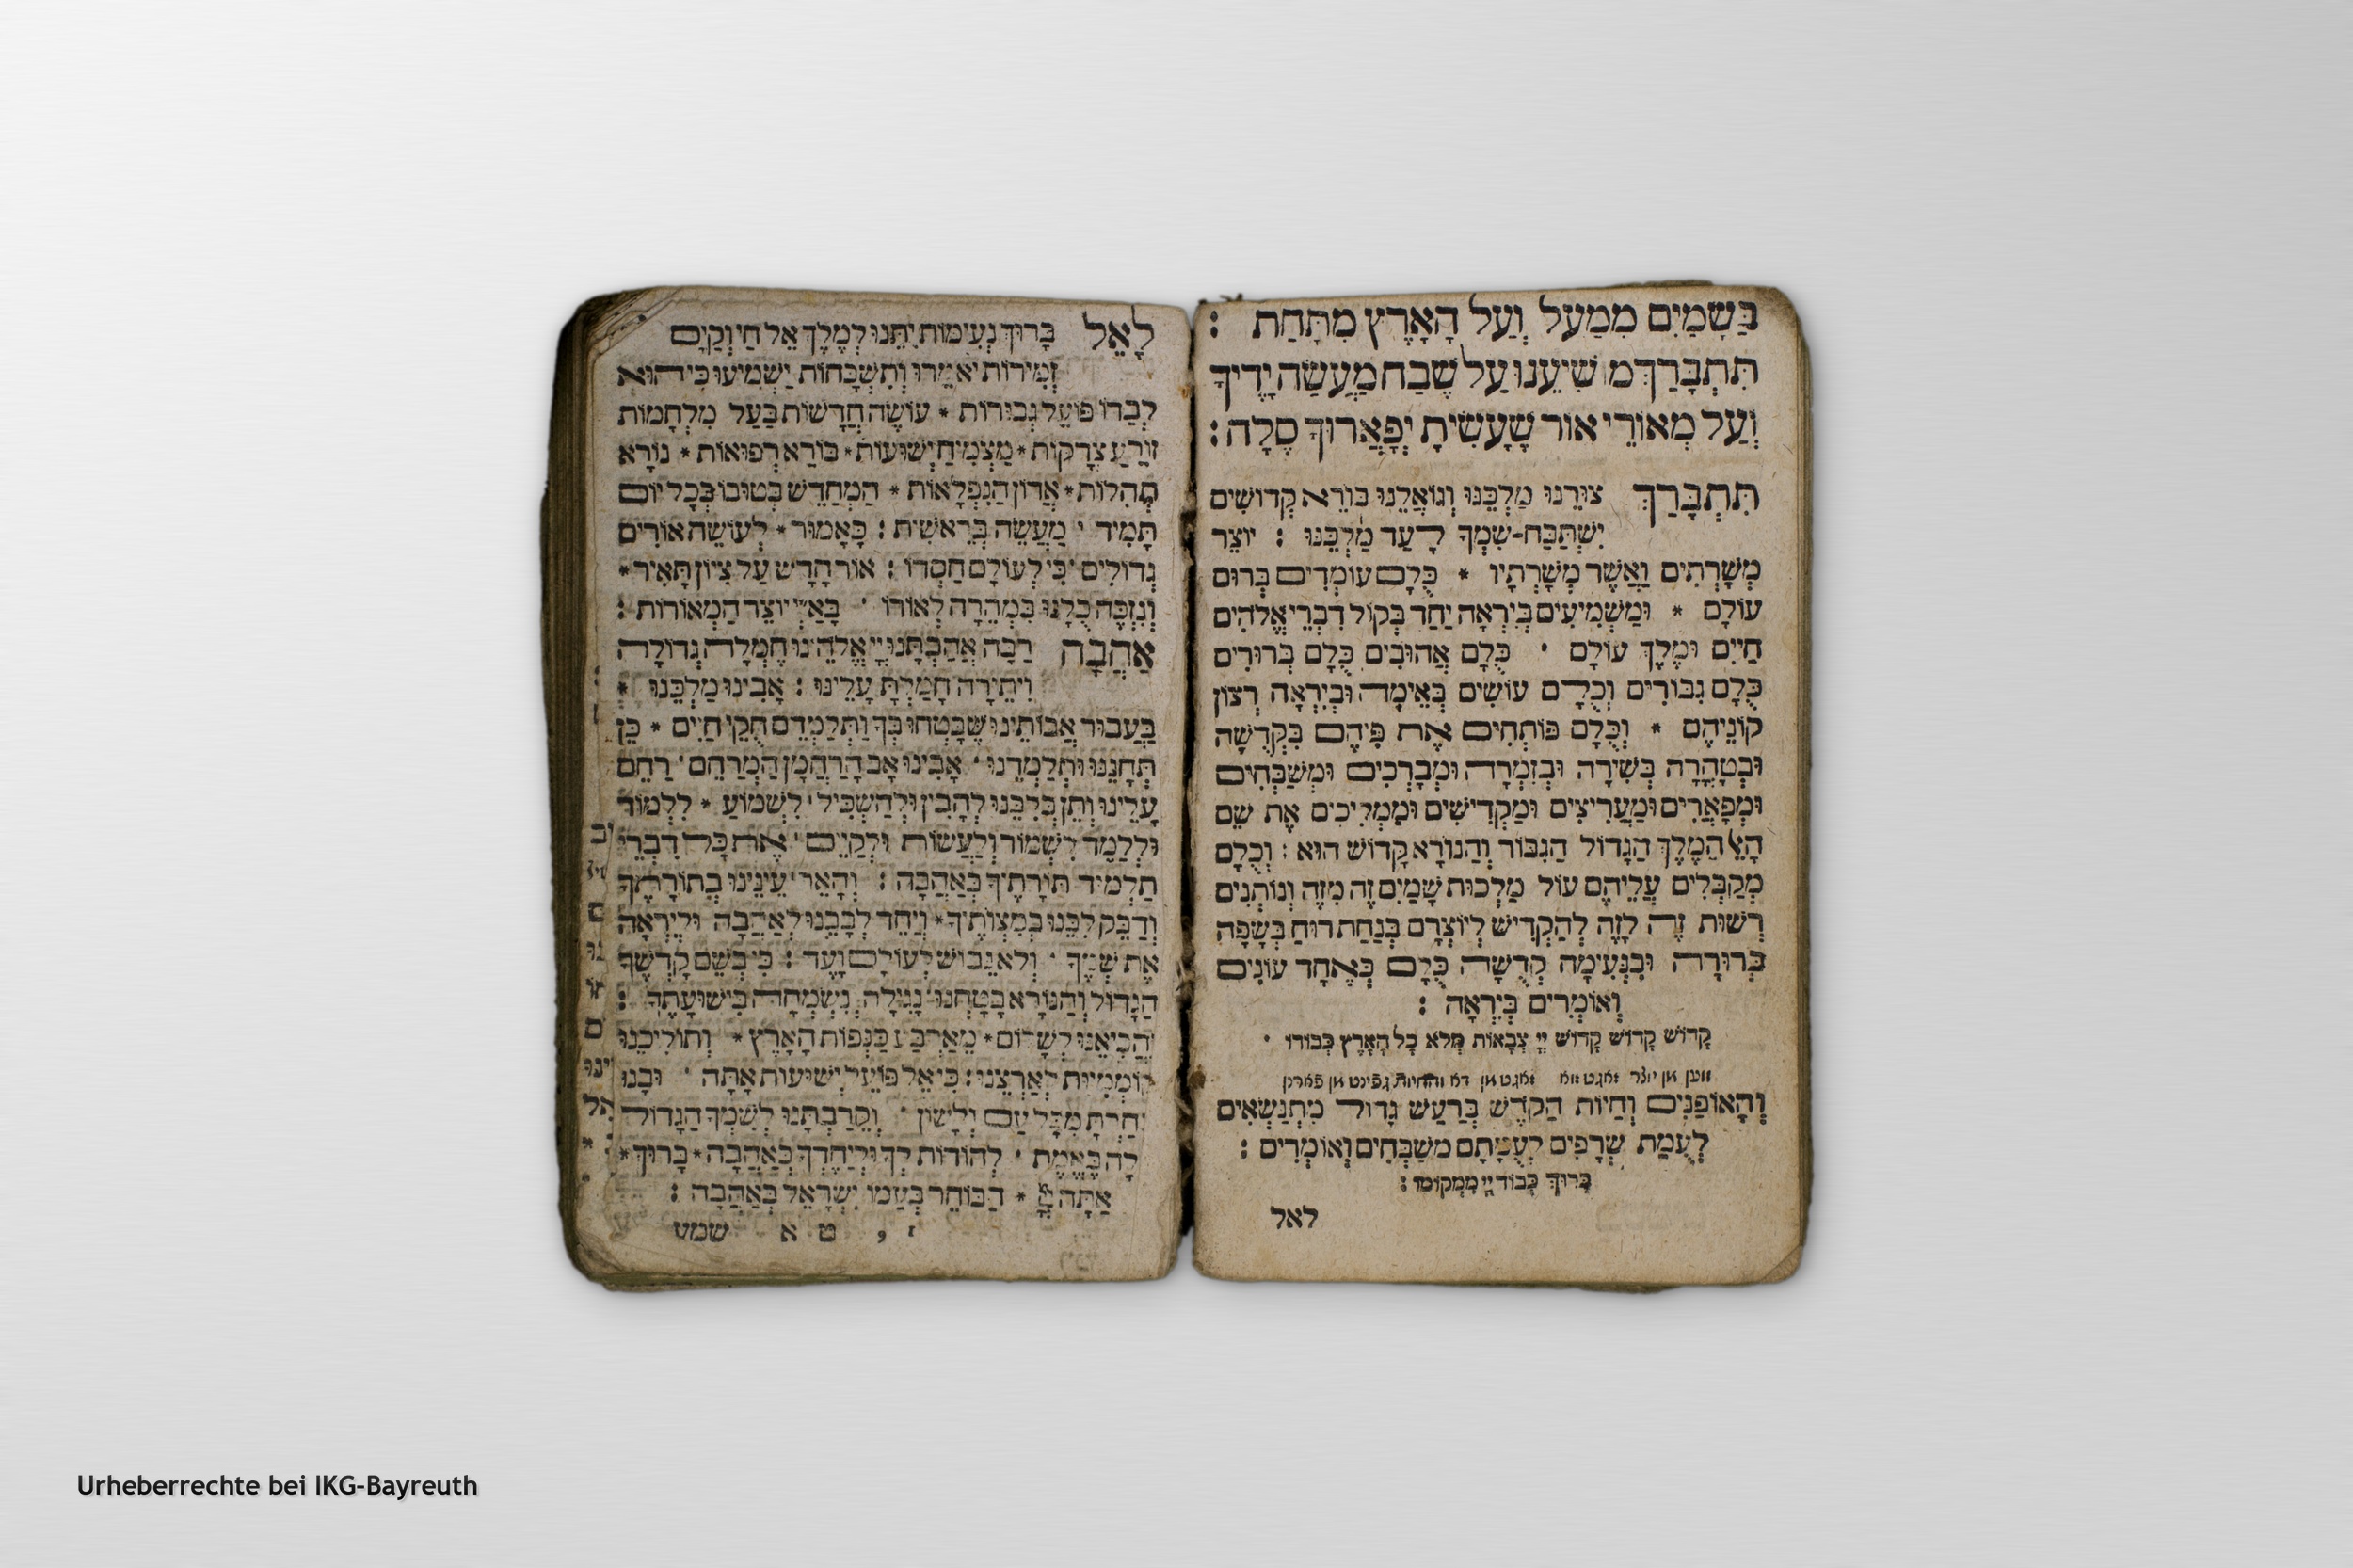 בַּשָׁמַיִם מִמַעַל וְעַל הָאָרֶץ מִתָּחַת :
תִּתְבָּרַךְ מוֹשִׁיעֵנוּ עַל שֶׁבַח מַעֲשֵׂה יָדֶיךָ
וְעַל מְאוֹרֵי אוֹר שֶׁעָשִׂיתָ יְפָאֲרוּךָ סֶלָה :
תִּתְבָּרַךְ צוּרֵנוּ מַלְכֵּנוּ וְגוֹאֲלֵנוּ בּוֹרֵא קְדוֹשִׁים
יִשְׁתַּבַּח שִׁמְךָ לָעַד מַלְכֵּנוּ : יוֹצֵר
מְשָׁרְתִים וַאֲשֶׁר מְשָׁרְתָיו * כֻּלָם עוֹמְדִים בְּרוּם
עוֹלָם * וּמַשְׁמִיעִים בְּיִרְאָה יַחַד בְּקוֹל דִבְרֵי אֱלֹהִים
חַיִים וּמֶלֶךְ עוֹלָם · כֻּלָם אֲהוּבִים כֻּלָם בְּרוּרִים
כֻּלָם גִבּוֹרִים וְכֻלָם עוֹשִׂים בְּאֵימָה וּבְיִרְאָה רְצוֹן
קוֹנֵיהֶם * וְכֻּלָם פּוֹתְחִים אֶת פִּיהֶם בִּקְדֻשָׁה
וּבְטָהֳרָה בְּשִׁירָה וּבְזִמְרָה וּמְבָרְכִים וּמְשַׁבְּחִים
וּמְפָאֲרִים וּמַעֲרִיצִים וּמַקְדִישִׁים וּמַמְלִיכִים אֶת שֵׁם
הָאֵל הַמֶלֶךְ הַגָדוֹל הַגִבּוֹר וְהַנוֹרָא קָדוֹשׁ הוּא : וְכֻלָם
מְקַבְּלִים עֲלֵיהֶם עוֹל מַלְכוּת שָׁמַיִם זֶה מִזֶה וְנוֹתְנִים
רְשׁוּת זֶה לָזֶה לְהַקְדִישׁ לְיוֹצְרָם בְּנַחַת רוּחַ בְּשָׂפָה
בְּרוּרָה וּבִנְעִימָה קְדֻשָׁה כֻּלָם כְּאֶחָד עוֹנִים
וְאוֹמְרִים בְּיִרְאָה :
קָדוֹשׁ קָדוֹשׁ קָדוֹשׁ יְיָ צְבָאוֹת מְלֹא כָל הָאָרֶץ כְּבוֹדוֹ ·
ווען מן יוצר זאגט זוא זאגט מן דא והחיות
וְהָאוֹפַנִים וְחַיוֹת הַקֹדֶשׁ בְּרַעַשׁ גָדוֹל מִתְנַשְׂאִים
לְעֻמַת שְׂרָפִים לְעֻמָתָם מְשַׁבְּחִים וְאוֹמְרִים :
בָּרוּךְ כְּבוֹד יְיָ מִמְקוֹמוֹ :
לאל
לָאֵל בָּרוּךְ נְעִימוֹת יִתֵּנוּ לְמֶלֶךְ אֵל חַי וְקַיָם
זְמִירוֹת יֹאמֵרוּ וְתִשְׁבָּחוֹת יַשְׁמִיעוּ כִּי הוּא
לְבַדוֹ פּוֹעֵל גְבוּרוֹת * עוֹשֶׂה חֲדָשׁוֹת בַּעַל מִלְחָמוֹת
זוֹרֵעַ צְדָקוֹת * מַצְמִיחַ יְשׁוּעוֹת * בּוֹרֵא רְפוּאוֹת * נוֹרָא
תְהִלוֹת * אֲדוֹן הַנִפְלָאוֹת * הַמְחַדֵשׁ בְּטוּבוֹ בְּכָל יוֹם
תָּמִיד · מַעֲשֵׂה בְּרֵאשִׁית : כָּאָמוּר * לְעוֹשֵׂה אוֹרִים
גְדוֹלִים · כִּי לְעוֹלָם חַסְדוֹ : אוֹר חָדָשׁ עַל צִיוֹן תָּאִיר *
וְנִזְכֶּה כֻלָנוּ בִּמְהֵרָה לְאוֹרוֹ · בָּאַ״יְ יוֹצֵר הַמְאוֹרוֹת :
אַהֲבָה רַבָּה אֲהַבְתָּנוּ יְיָ אֱלֹהֵינוּ חֶמְלָה גְדוֹלָה
וִיתֵירָה חָמַלְתָּ עָלֵינוּ : אָבִינוּ מַלְכֵּנוּ *
בַּעֲבוּר אֲבוֹתֵינוּ שֶׁבָּטְחוּ בְּךָ וַתְּלַמְדֵם חֻקֵי חַיִים * כֵּן
תְּחָנֵנוּ וּתְלַמְדֵנוּ · אָבִינוּ אָב הָרַחֲמָן הַמְרַחֵם · רַחֵם
עָלֵינוּ וְתֵן בְּלִבֵּנוּ לְהָבִין וּלְהַשְׂכִּיל · לִשְׁמוֹעַ * לִלְמוֹד
וּלְלַמֵד לִשְׁמוֹר וְלַעֲשׂוֹת וּלְקַיֵים · אֶת כָּל דִבְרֵי
תַלְמוּד תּוֹרָתֶיךָ בְּאַהֲבָה : וְהָאֵר עֵינֵינוּ בְּתוֹרָתֶךָ
וְדַבֵּק לִבֵּנוּ בְּמִצְוֹתֶיךָ * וְיַחֵד לְבָבֵנוּ לְאַהֲבָה וּלְיִרְאָה
אֶת שְׁמֶךָ · וְלֹא נֵבוֹשׁ לְעוֹלָם וָעֶד : כִּי בְשֵׁם קָדְשְׁךָ
הַגָדוֹל וְהַנוֹרָא בָּטָחְנוּ · נָגִילָה וְנִשְׂמְחָה בִּישׁוּעָתֶךָ :
וַהֲבִיאֵנוּ לְשָׁלוֹם * מֵאַרְבַּע כַּנְפוֹת הָאָרֶץ * וְתוֹלִיכֵנוּ
קוֹמְמִיוּת לְאַרְצֵנוּ : כִּי אֵל פּוֹעֵל יְשׁוּעוֹת אָתָּה · וּבָנוּ
בָחַרְתָּ מִכָּל עַם וְלָשׁוֹן · וְקֵרַבְתָּנוּ לְשִׁמְךָ הַגָדוֹל
סֶלָה בֶּאֱמֶת · לְהוֹדוֹת לְךָ וּלְיַחֶדְךָ בְּאַהֲבָה * בָּרוּךְ *
אַתָּה יְיָ * הַבּוֹחֵר בְּעַמוֹ יִשְׂרָאֵל בְּאַהֲבָה :
ט א שמע
Urheberrechte bei IKG-Bayreuth